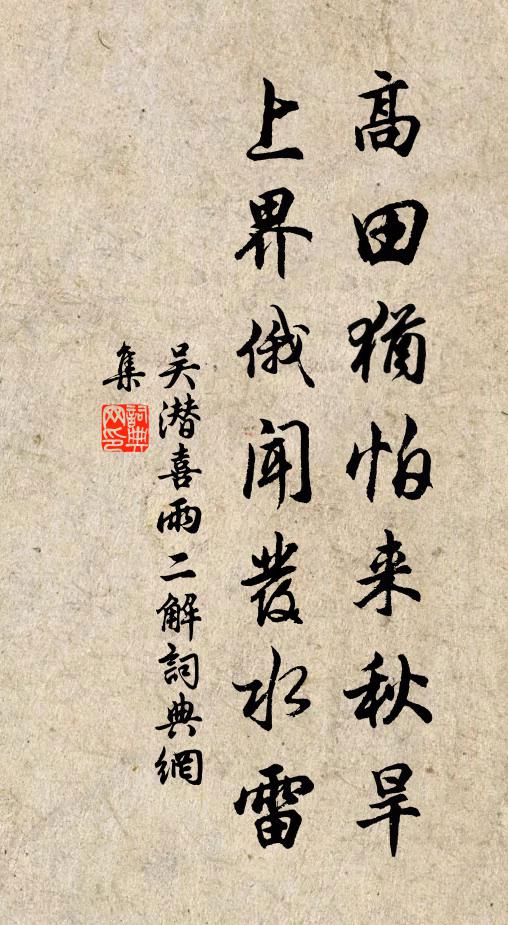 高田猶怕来秋旱
上界俄闻發水雷
吴潜喜雨二解詞典網
集
詞典
网印